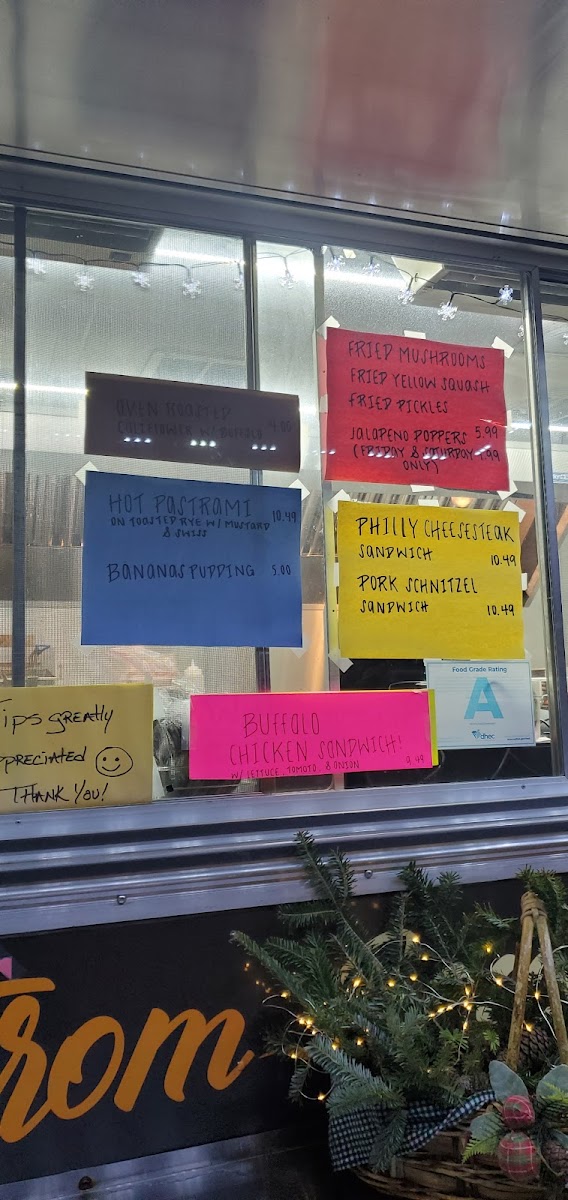 FRIED MUSHROOMS
FRIED YELLOW SQUASH
FRIED PICKLES
JALAPENO POPPERS 5.99
(FRIDAY & SATURDAY 7.99
ONLY)
OVEN ROASTED
W/ BUFFALO 4.00
HOT PASTRAMI 10.49
ON TOASTED RYE W/ MUSTARD
& SWISS
BANANAS PUDDING 5.00
PHILLY CHEESESTEAK
SANDWICH 10.49
PORK SCHNITZEL
SANDWICH 10.49
Food Grade Rating
A
dhec
Tips GREATLY
APPRECIATED
THANK YOU!
BUFFALO
CHICKEN SANDWICH!
W/ LETTUCE, TOMATO, & ONION 9.49
From